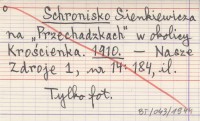 Schronisko Sienkiewicza
na „Przechadzkach" w okolicy
Krościenka. 1910. — Nasze
Zdroje 1, nr 14: 184, il.
Tylko fot.
BT/043/1994